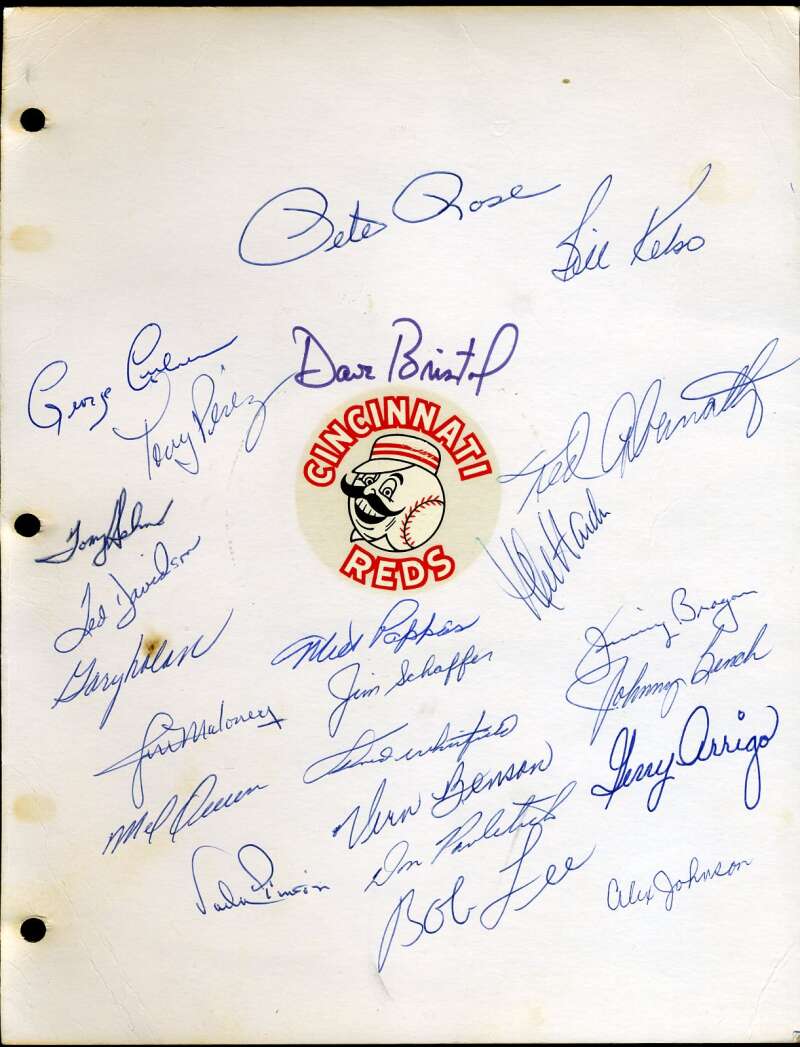 Pete Rose
Bill Kelso
George Culver
Dave Bristol
Tony Pérez
Ted Abernathy
CINCINNATI
REDS
Tony
Ted Davidson
Gary Nolan
Milt Pappas
Jim Schaffer
Jimmy Bragan
Johnny Bench
Jim Maloney
Fred Whitfield
Gerry Arrigo
Mel Queen
Vern Benson
Don Pavletich
Vada Pinson
Bob Lee
Alex Johnson